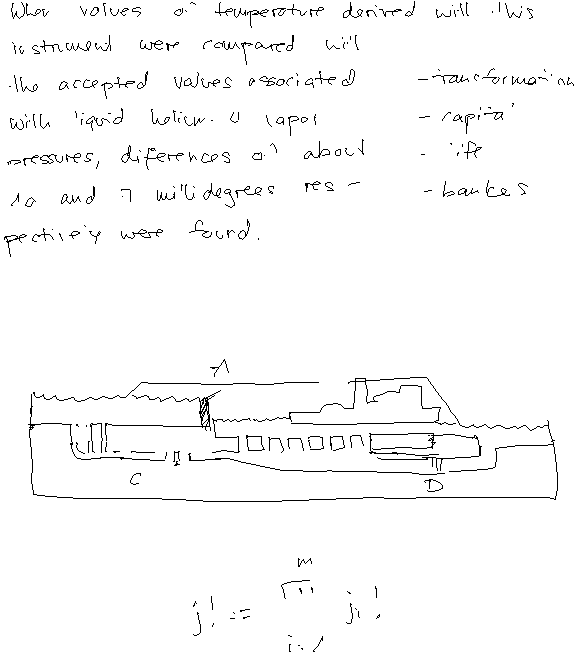 When values of temperature derived with this
instrument were compared with
the accepted values associated
with liquid helium 4 vapor
pressures, diferences of about
10 and 7 millidegrees res-
pectively were found.
- transformation
- capital
- life
- bankes
A
C
D
m
j! := ∏ ji!